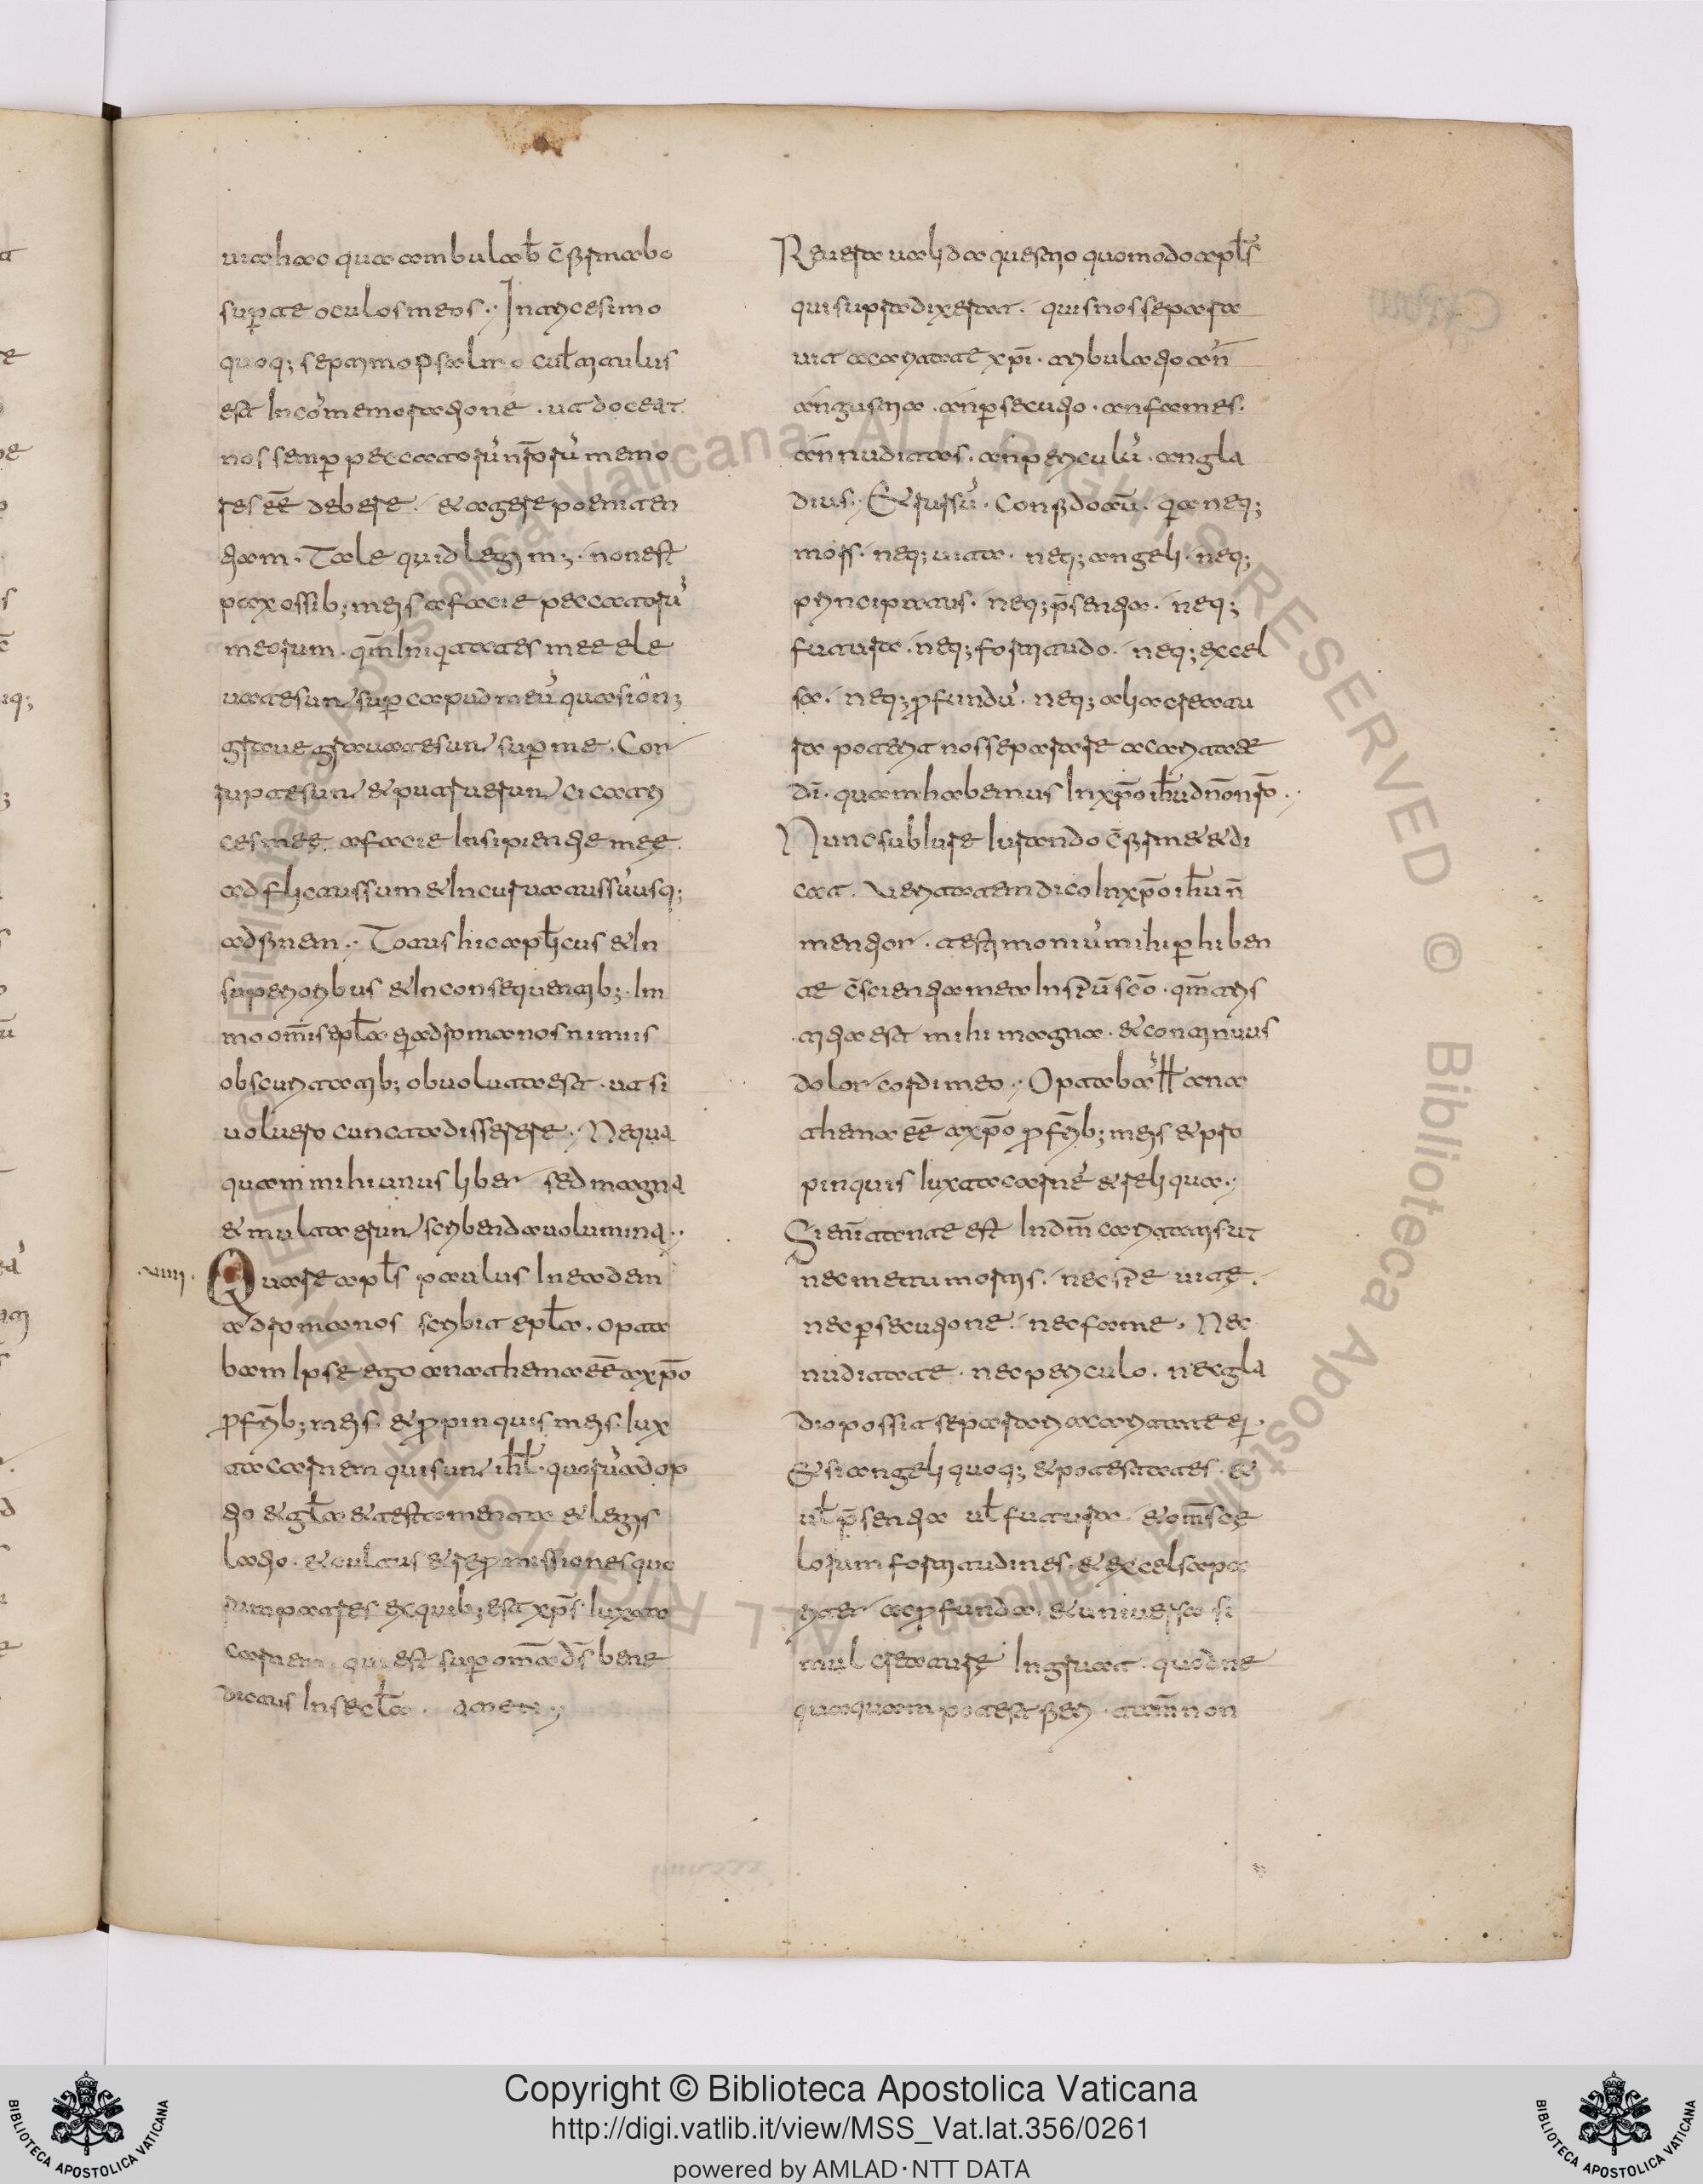 uia hac qua ambulab c̄firmabo
sup̱ te oculos meos. In tricesimo
quoq; septimo psalmo cui titulus
est In cōmemoratione. ut doceat
nos semp̱ peccatorū nr̄orū memo
res eē debere. & agere poeniten
tiam. Tale quid legim;. non est
pax ossib; meis a facie peccatorū
meorum. qm̄ Iniquitates meę ele
uatę sunt sup̱ caput meū quasi on;
graue grauatę sunt sup̱ me. Con
ruptę sunt & putruerunt cicatri
ces meę. a facie Insipientię meę.
adflictus sum & Incuruatus sū usq;
ad finem. Totus hic apl̄icus & In
superioribus & In consequentib;. Im
mo om̄is epl̄a ei ad romanos nimiis
obscuritatib; obuoluta est. ut si
uoluero cuncta disserere. Nequa
quam mihi unus liber sed magna
& multa erunt scribenda uolumina.
.uiiii. Quare apl̄s paulus In eadem
ad romanos scribit epl̄a. opta
bam Ipse ego anathema eē a xp̄o
ꝓ frib; meis. & ꝓpinquis meis. Iux
ta carnem qui sunt ihl̄. quorū adop
tio & gl̄a & testamenta & legis
latio. & cultus & reꝓmissiones quo
rum patres ex quib; est xp̄s Iuxta
carnem. qui est sup̱ om̄a d̄s bene
dictus In secl̄a. amen.
Reuera ualida questio quomodo apl̄s
qui supra dixerat. quis nos separa
uit a caritate xp̄i. tribulatio an̄
an̄ gustia. an̄ p̱secutio. an̄ fames.
an̄ nuditas. an̄ periculū. an gla
dius. & rursū. Confido aū. q̱a neq;
mors. neq; uita. neq; angeli. neq;
principatus. neq; p̄sentia. neq;
futura. neq; fortitudo. neq; excel
sa. neq; ꝓfundū. neq; alia creatu
ra poterit nos separare a caritate
dī. quam habemus In xp̄o ihū dn̄o nr̄o.
Nunc sub Iure Iurando c̄firm& & di
cat. ueritatem dico In xp̄o ihū n̄
mentior. testimoniū mihi p̱hiben
te c̄scientia mea In sp̄ū sc̄o. qm̄ tris
titia est mihi magna. & continuus
dolor cordi meo. Optabā H ana
thema eē a xp̄o ꝓ frib; meis & pro
pinquis Iuxta carnē & reliqua.
Si eni tante est In dm̄ caritatis ut
nec metu mortis. nec spe uitę.
nec p̱secutione. nec fame. Nec
nuditate. nec periculo. nec gla
dio possit separari a caritate ei.
& si angeli quoq; & potestates. &
ul̄ p̄sentia ul̄ futura. & om̄s cę
lorum fortitudines. & excelsa pa
riter ac ꝓfunda. & uniuersa si
mul creaturę Ingruat. quod ne
quaquam potest fieri. tam̄ non